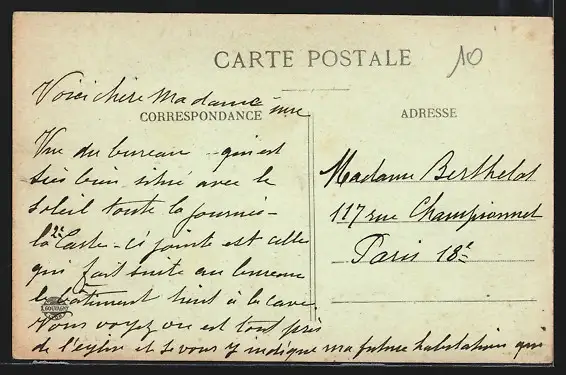 CARTE POSTALE
10
Voici chère Madame une
CORRESPONDANCE
ADRESSE
Vue du bureau qui est
très bien situé avec le
soleil toute la journée -
la 2e Carte - ci jointe est celle
qui fait suite au bureau
le bâtiment tient à la cave
Vous voyez on est tout près
de l'eglise et je vous y indique ma future habitation que
Madame Berthelot
117 rue Championnet
Paris 18e